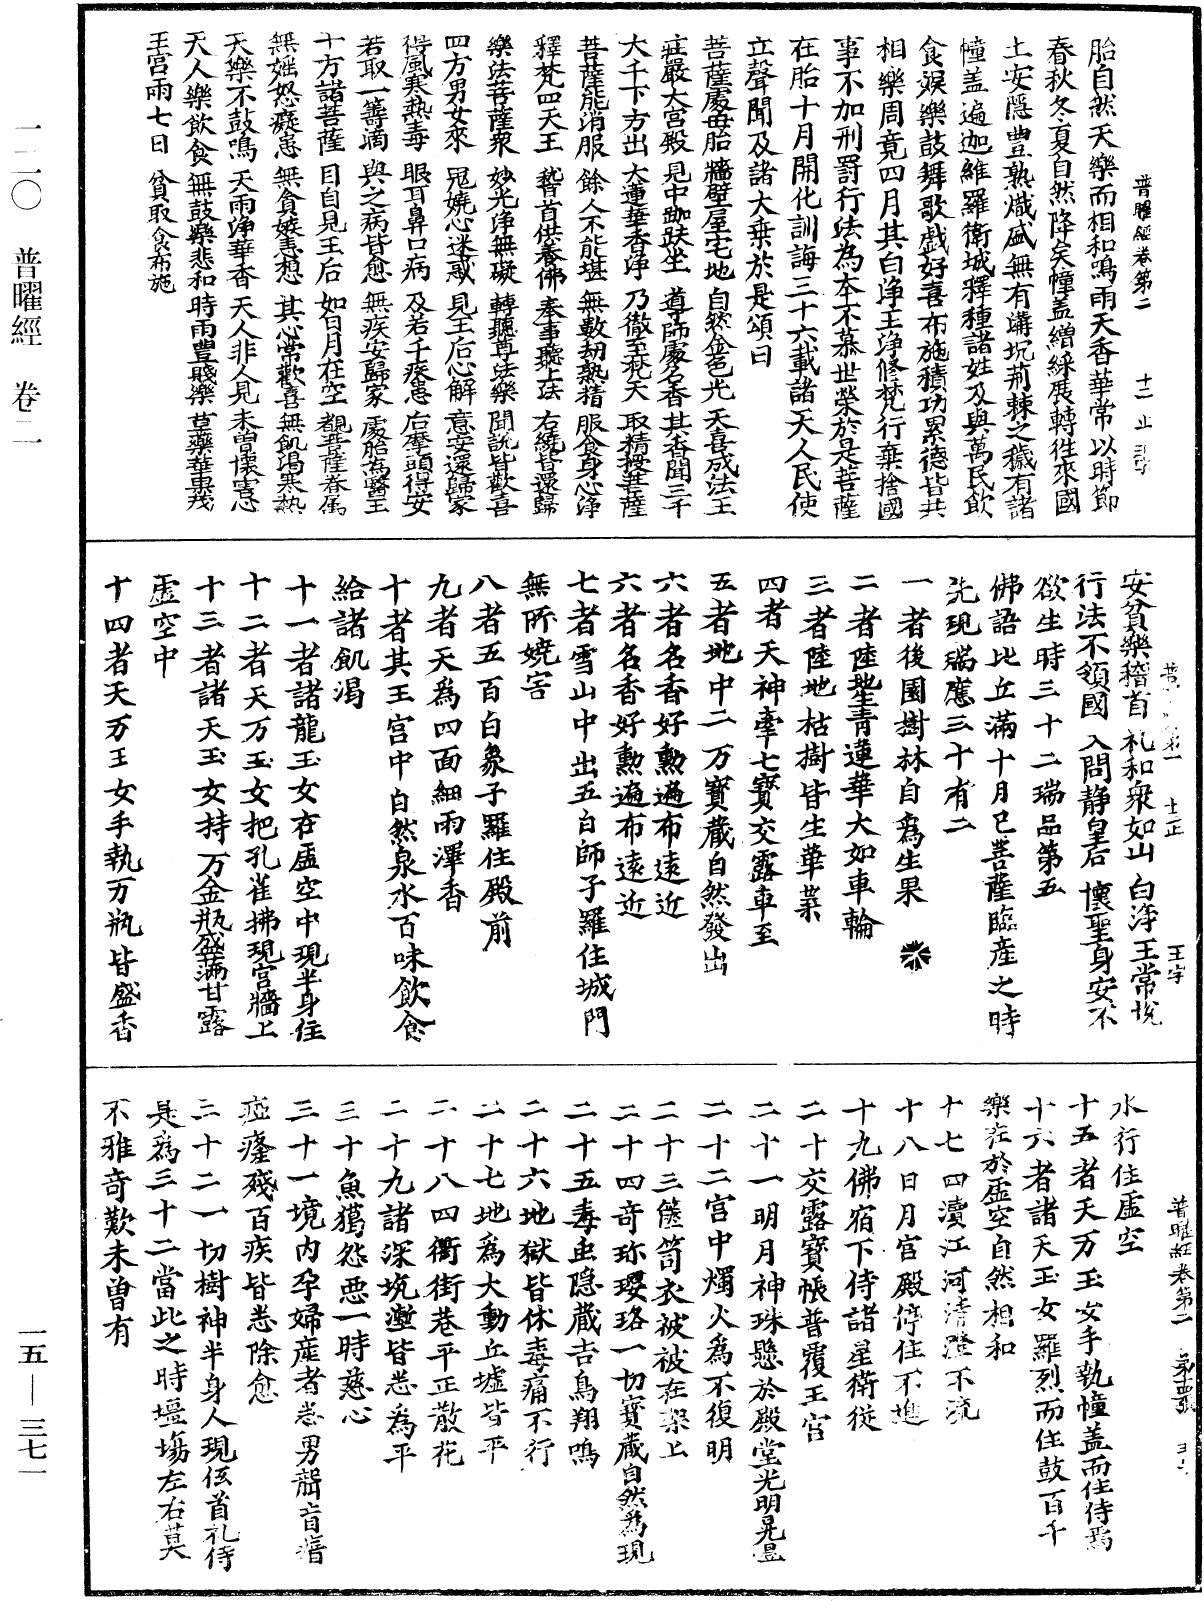 一二〇 普曜經 卷二
一五—三七一
普曜經卷第二
胎自然天樂而相和鳴雨天香華常以時節
春秋冬夏自然降矣幢盖繒綵展轉往來國
土安隱豊熟熾盛無有溝坑荊棘之穢有諸
幢盖遍迦維羅衛城釋種諸姓及與萬民飲
食娛樂鼓舞歌戲好喜布施積功累德皆共
相樂周竟四月其白淨王淨修梵行棄捨國
事不加刑罰行法為本不慕世榮於是菩薩
在胎十月開化訓誨三十六載諸天人民使
立聲聞及諸大乗於是頌曰
菩薩處母胎 牆壁屋宅地 自然金色光 天喜成法王
莊嚴大宮殿 見中跏趺坐 導師處名香 其香聞三千
大千下方出 大蓮華香淨 乃徹至梵天 取精授菩薩
菩薩能消服 餘人不能堪 無數劫熟精 服食身心淨
釋梵四天王 稽首供養佛 奉事聽上法 右繞皆還歸
樂法菩薩衆 妙光淨無礙 轉聽尊法樂 聞說皆歡喜
四方男女來 鬼嬈心迷惑 見王后心解 意安還歸家
得風寒熱毒 眼耳鼻口病 及若干疾患 后摩頭得安
若取一籌滴 與之病皆愈 無疾安歸家 處胎為醫王
十方諸菩薩 目自見王后 如日月在空 覩菩薩眷屬
無婬怒癡患 無貪嫉恚想 其心常歡喜 無飢渴寒熱
天樂不鼓鳴 天雨淨華香 天人非人見 未曽懷害恚
天人樂飲食 無鼓樂悲和 時雨豊賤樂 草藥華果茂
王宮雨七日 貧取食布施
安貧樂稽首 礼和衆如山 白淨王常悅
行法不領國 入問靜皇后 懷聖身安不
欲生時三十二瑞品第五
佛語比丘滿十月已菩薩臨産之時
先現瑞應三十有二
一者後園樹林自為生果
二者陸地生青蓮華大如車輪
三者陸地枯樹皆生華葉
四者天神牽七寶交露車至
五者地中二万寶藏自然發出
六者名香好熏遍布遠近
六者名香好熏遍布遠近
七者雪山中出五白師子羅住城門
無所嬈害
八者五百白象子羅住殿前
九者天為四面細雨澤香
十者其王宮中自然泉水百味飲食
給諸飢渴
十一者諸龍玉女在虛空中現半身住
十二者天万玉女把孔雀拂現宮牆上
十三者諸天玉女持万金瓶盛滿甘露
虛空中
十四者天万玉女手執万瓶皆盛香
普曜經卷第二
水行住虛空
十五者天万玉女手執幢盖而住侍焉
十六者諸天玉女羅烈而住鼓百千
樂在於虛空自然相和
十七四瀆江河清澄不流
十八日月宮殿停住不進
十九佛宿下侍諸星衛從
二十交露寶帳普覆王宮
二十一明月神珠懸於殿堂光明晃昱
二十二宮中燭火為不復明
二十三篋笥衣被被在架上
二十四奇珎瓔珞一切寶藏自然為現
二十五毒虫隱藏吉鳥翔鳴
二十六地獄皆休毒痛不行
二十七地為大動丘墟皆平
二十八四衢街巷平正散花
二十九諸深坑壍皆悉為平
三十魚獦怨惡一時慈心
三十一境内孕婦産者悉男聾盲瘖
瘂癃殘百疾皆悉除愈
三十二一切樹神半身人現低首礼侍
是為三十二當此之時壃場左右莫
不雅奇歎未曽有